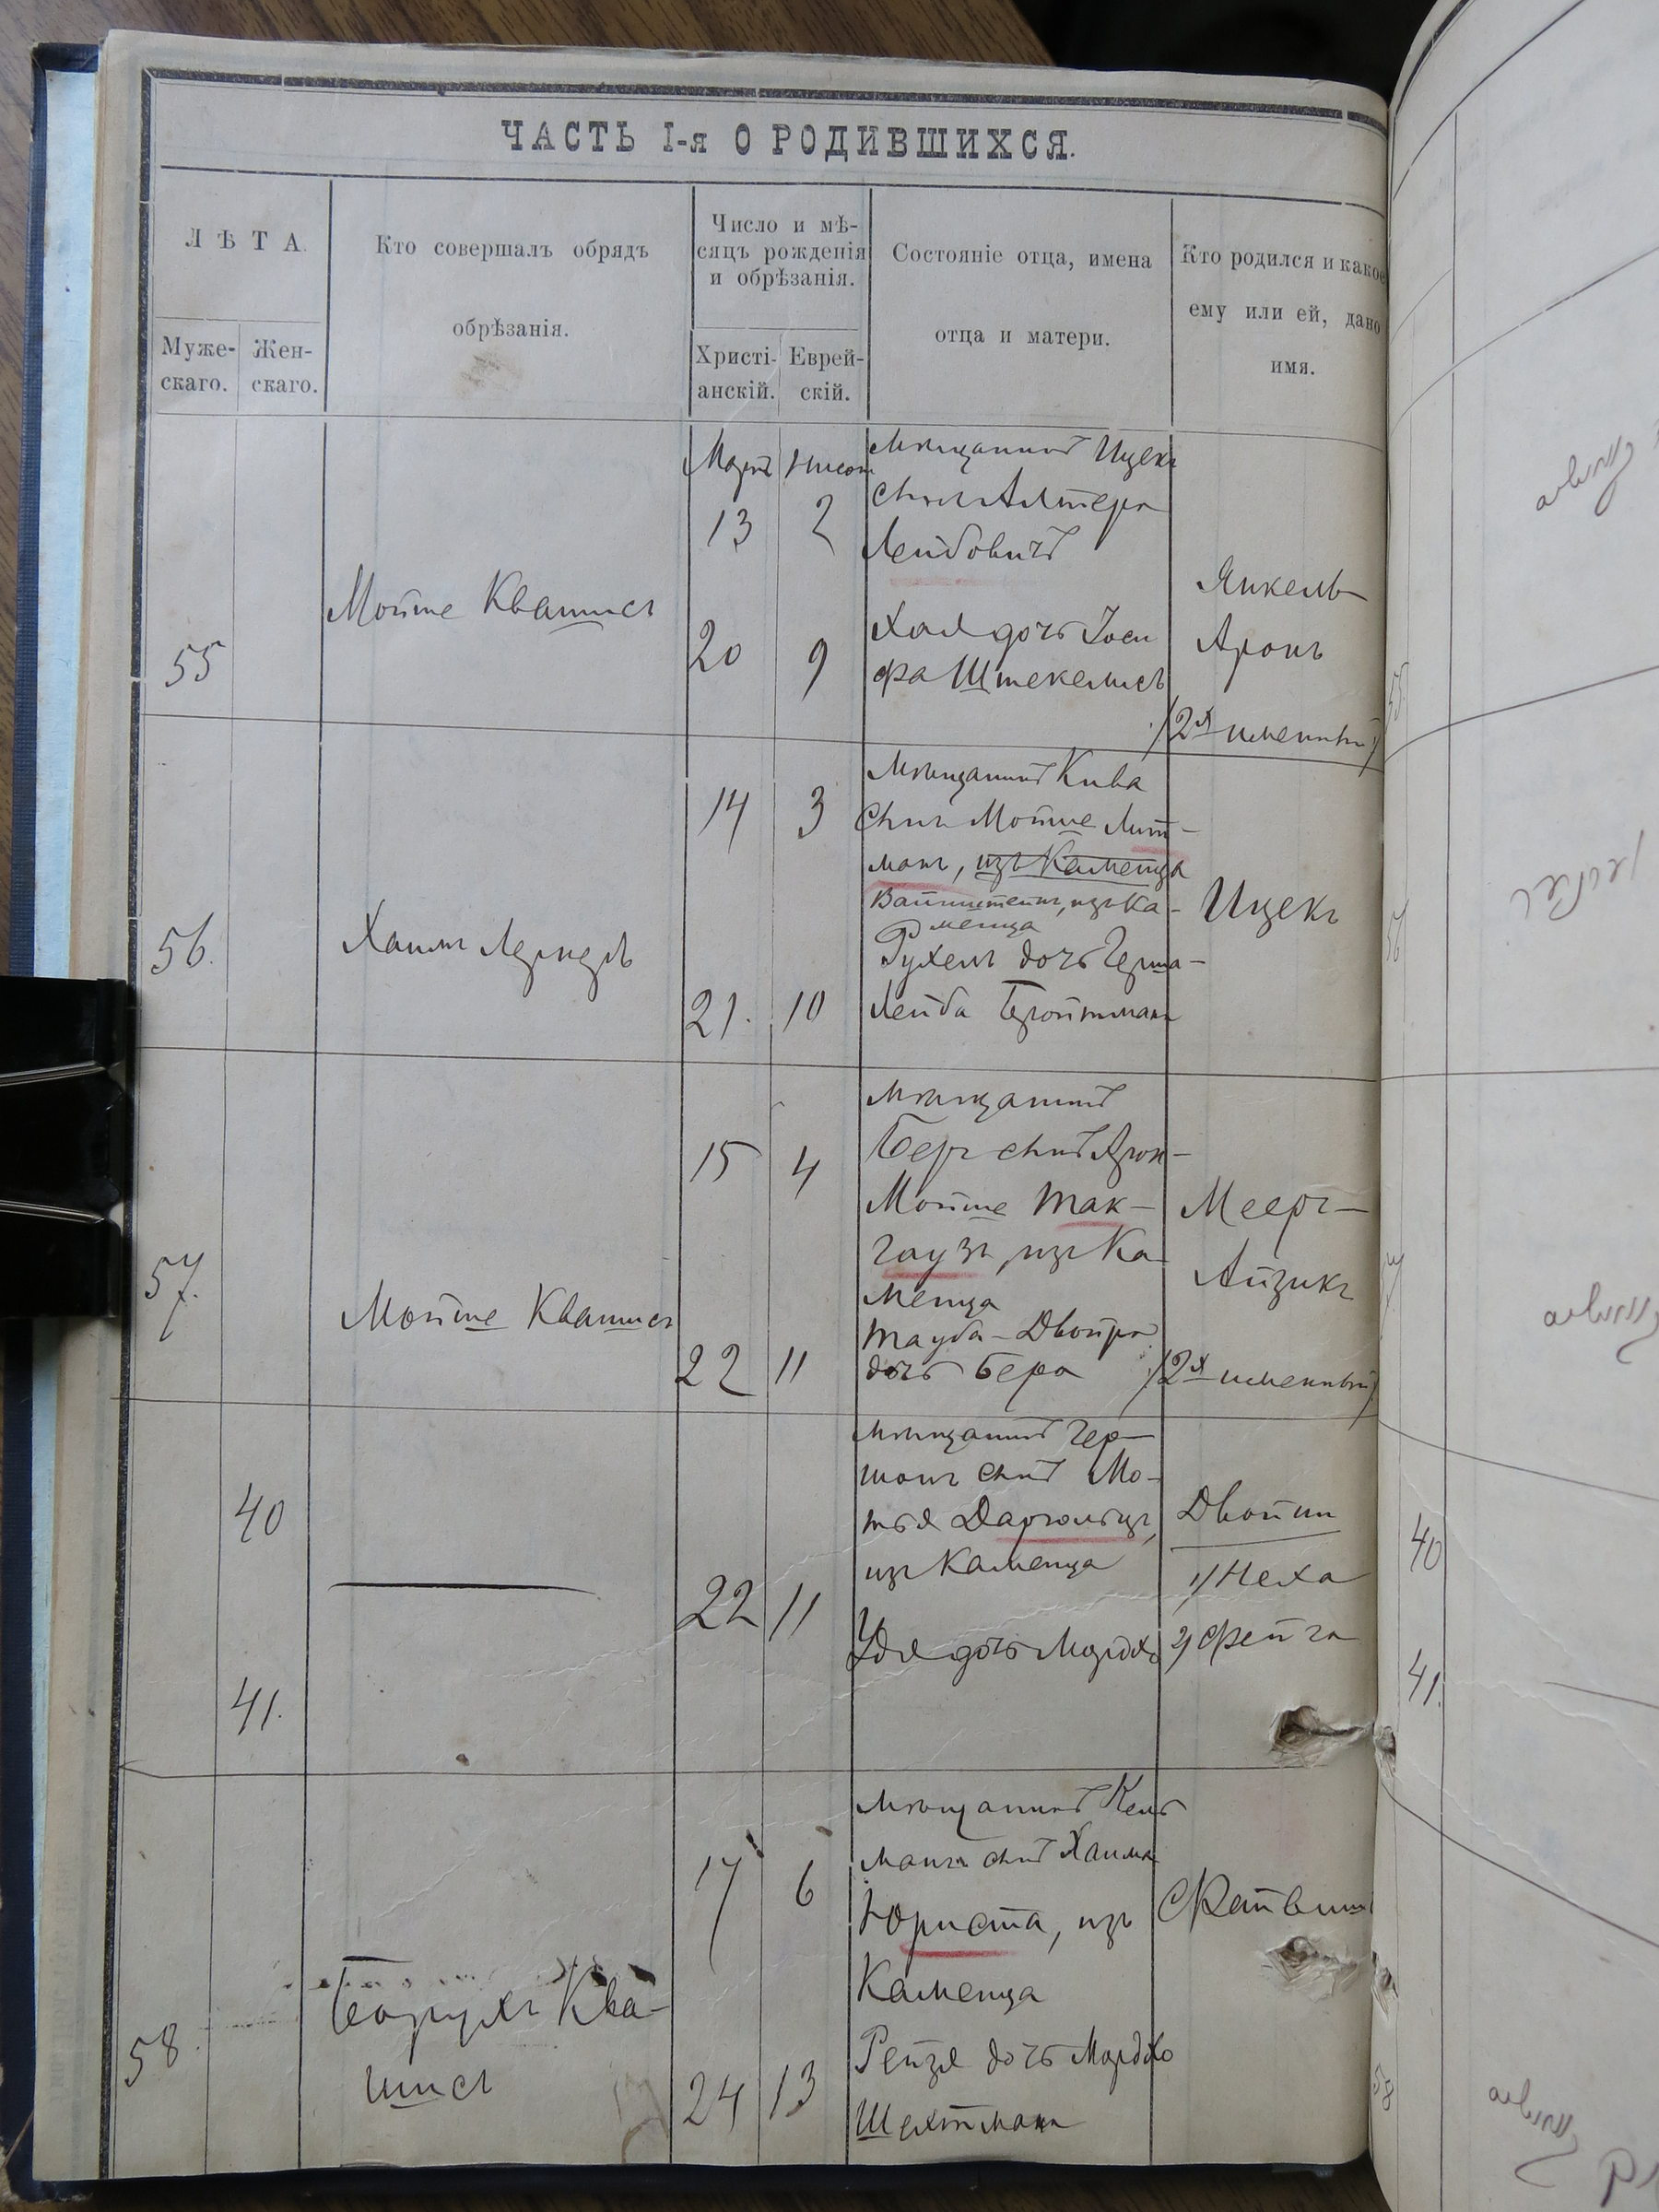 ЧАСТЬ I-я О РОДИВШИХСЯ.
ЛѢТА.
Муже-
скаго.
Жен-
скаго.
Кто совершалъ обрядъ
обрѣзанія.
Число и мѣ-
сяцъ рожденія
и обрѣзанія.
Христі-
анскій.
Еврей-
скій.
Состояніе отца, имена
отца и матери.
Кто родился и какое
ему или ей, дано
имя.
55
Мойше Квашисъ
Мартъ Нисон
13 2
20 9
Мѣщанинъ Ицекъ
сынъ Алтера
Лейбовичъ
Хая дочь Іоси
фа Штекелисъ
Янкель-
Аронъ
/2х именный/
56.
Хаимъ
14 3
21. 10
Мѣщанинъ Кива
сынъ Мойше Лит-
манъ, изъ Каменца
Вайнштейнъ, изъ Ка-
менца
Рухель дочь Герша-
Лейба Бройтманъ
Ицекъ
57.
Мойше Квашисъ
15 4
22 11
Мѣщанинъ
Беръ сынъ Арон-
Мойше Пак-
гаузъ, изъ Ка
менца
Тауба-Двойра
дочь Бера
Мееръ-
Айзикъ
/2х именный/
40
41.
22 11
Мѣщанинъ Гер-
шонъ сынъ Мо-
тья Даргольцъ,
изъ Каменца
Удя дочь Мордх
Двойни
1/ Неха
2/ Фейга
58.
Борухъ Ква-
шисъ
17 6
24 13
Мѣщанинъ Кель
манъ сынъ Хаима
Юриста, изъ
Каменца
Рейзя дочь Мордко
Шехтманъ
Файвишъ
55
56
57
40
41.
58